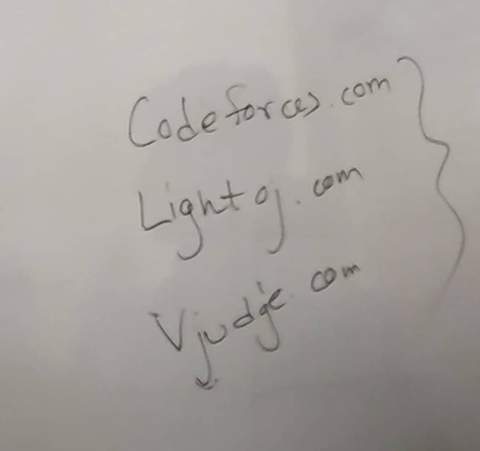 Codeforces.com
Lightoj.com
Vjudge.com